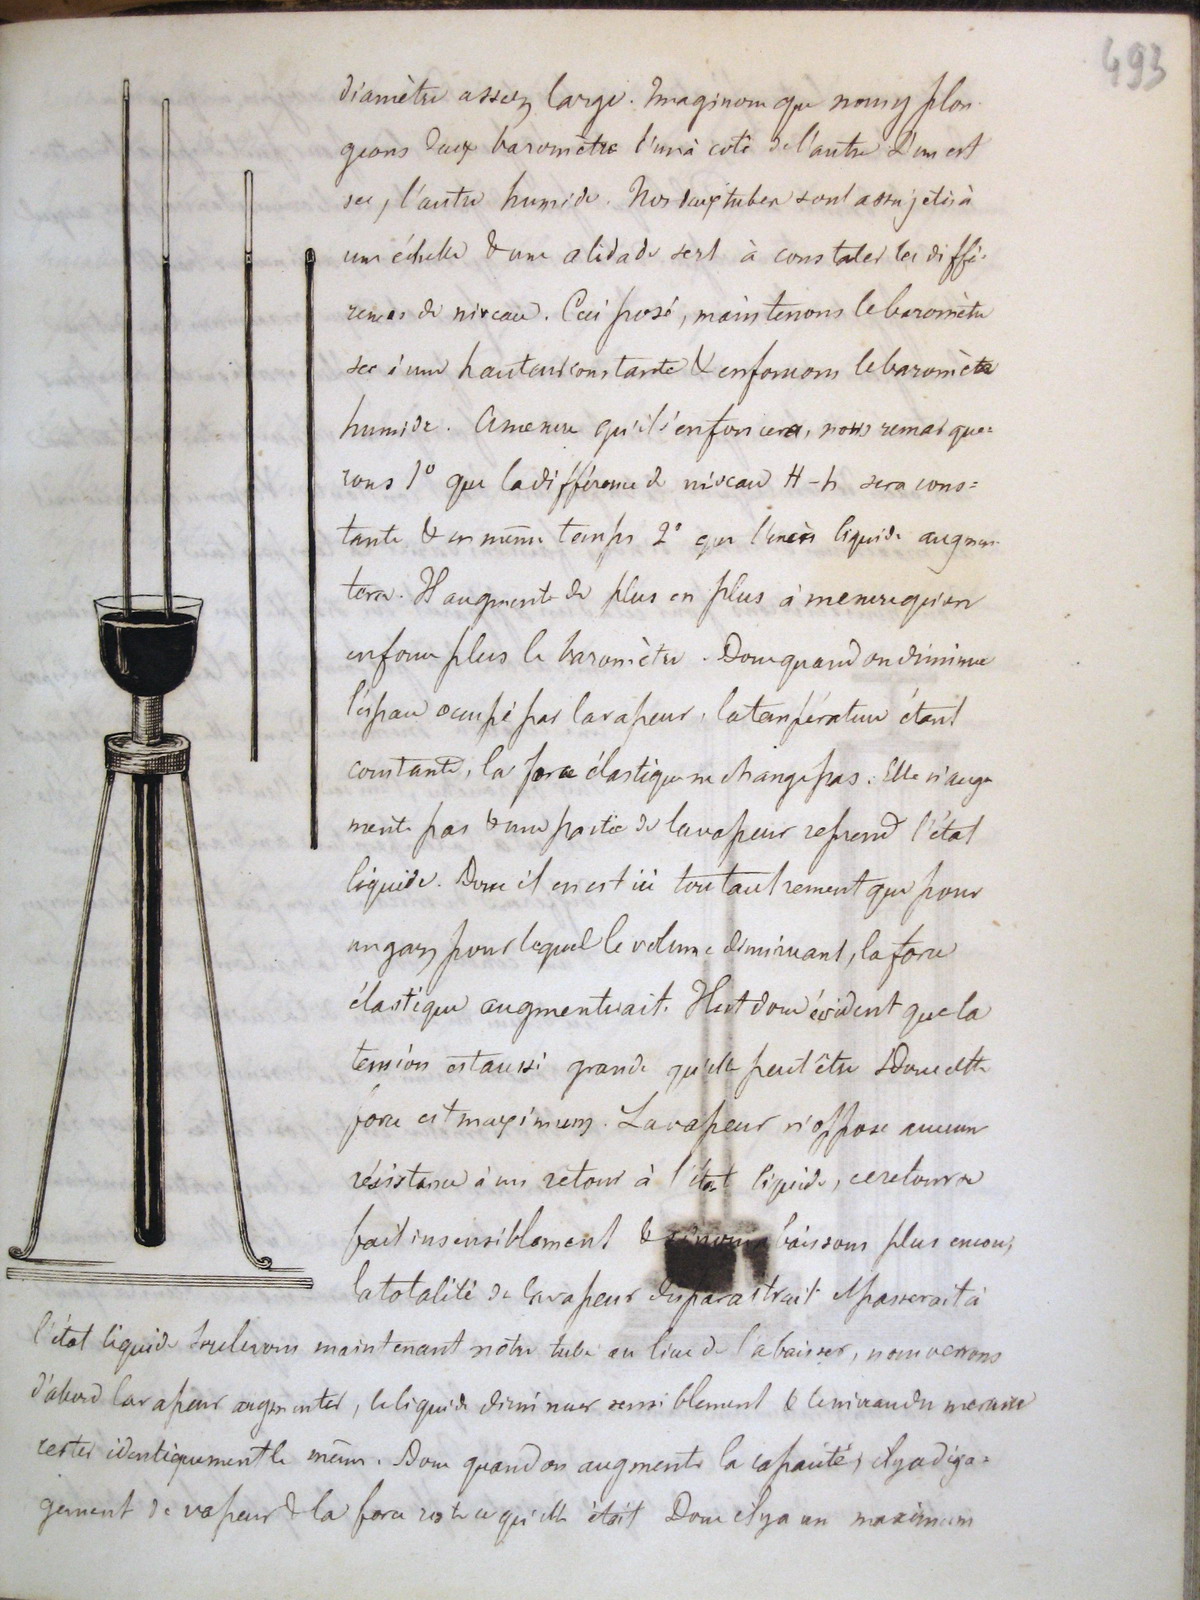 493
diamètre assez large. Imaginons que nous y plon-
geons deux baromètres l'un à coté de l'autre L'un est
sec, l'autre humide. Nos deux tubes sont assujetis à
une échelle & une alidade sert à constater les diffé-
rences de niveau. Ceci posé, maintenons le baromètre
sec à une hauteur constante & enfonçons le baromètre
humide. A mesure qu'il s'enfoncera, nous remarque=
rons 1º que la différence de niveau H-h sera cons=
tante & en même temps 2º que l'excès liquide augmen-
tera. Il augmente de plus en plus à mesure qu'on
enfonce plus le baromètre. Donc quand on diminue
l'espace occupé par la vapeur, la température étant
constante, la force élastique ne change pas. Elle n'aug-
mente pas & une partie de la vapeur reprend l'état
liquide. Donc il en est ici tout autrement que pour
un gaz pour lequel le volume diminuant, la force
élastique augmenterait. Il est donc évident que la
tension est aussi grande qu'elle peut être Donc cette
force est maximum. La vapeur n'oppose aucune
résistance à un retour à l'état liquide, ce retour se
fait insensiblement & si nous baissons plus encore,
la totalité de la vapeur disparaîtrait & passerait à
l'état liquide Soulevons maintenant notre tube au lieu de l'abaisser, nous verrons
d'abord la vapeur augmenter, le liquide diminuer sensiblement & le niveau du mercure
rester identiquement le même. Donc quand on augmente la capacité, il y a déga=
gement de vapeur & la force reste ce qu'elle était Donc il y a un maximum